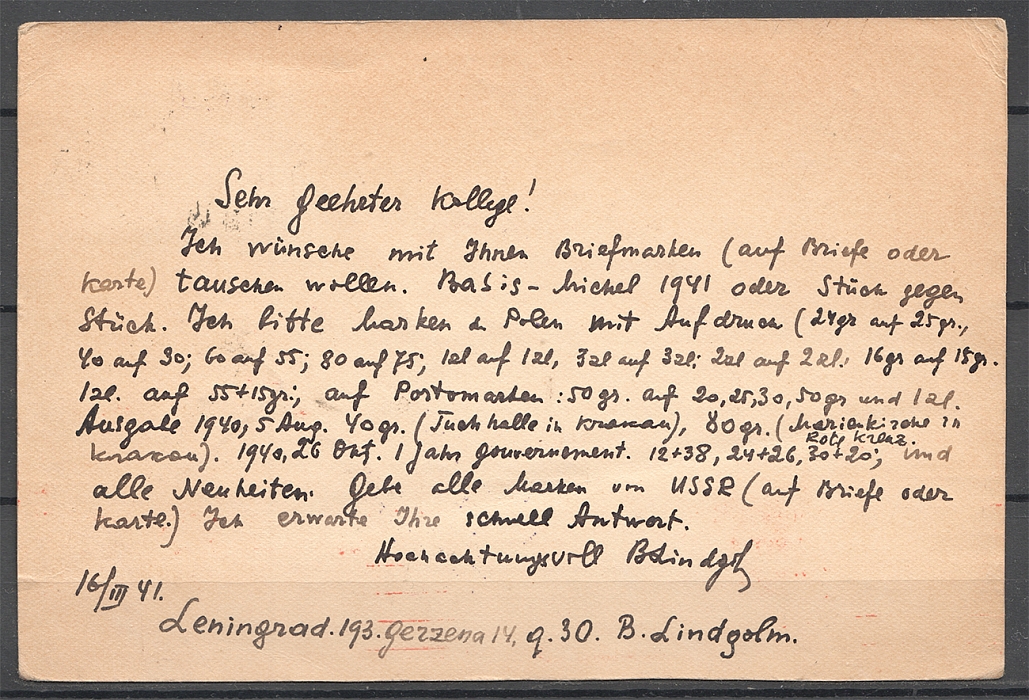 Sehr geehrter Kollege!
Ich wünsche mit Ihnen Briefmarken (auf Briefe oder
karte) tauschen wollen. Basis - Michel 1941 oder Stück gegen
Stück. Ich bitte Marken Polen mit Aufdruck (24gr auf 25gr.,
40 auf 30; 60 auf 55; 80 auf 75; 1zl auf 1zl, 3zl auf 3zl; 2zl auf 2zl; 16gr auf 15gr.
1zl. auf 55+15gr; auf Portomarken: 50gr. auf 20,25,30,50gr und 1zl.
Ausgabe 1940, 5 Aug. 40gr. (Tuchhalle in Krakau), 80gr. (Marienkirche in
Rote Kreuz.
Krakau). 1940, 26 Okt. 1 Jahr gouvernement. 12+38, 24+26, 30+20; und
alle Neuheiten. Gebe alle Marken von USSR (auf Briefe oder
karte.) Ich erwarte Ihre schnell Antwort.
Hochachtungsvoll BLindg
16/III 41.
Leningrad. 193. Gerzena 14, q. 30. B. Lindgolm.